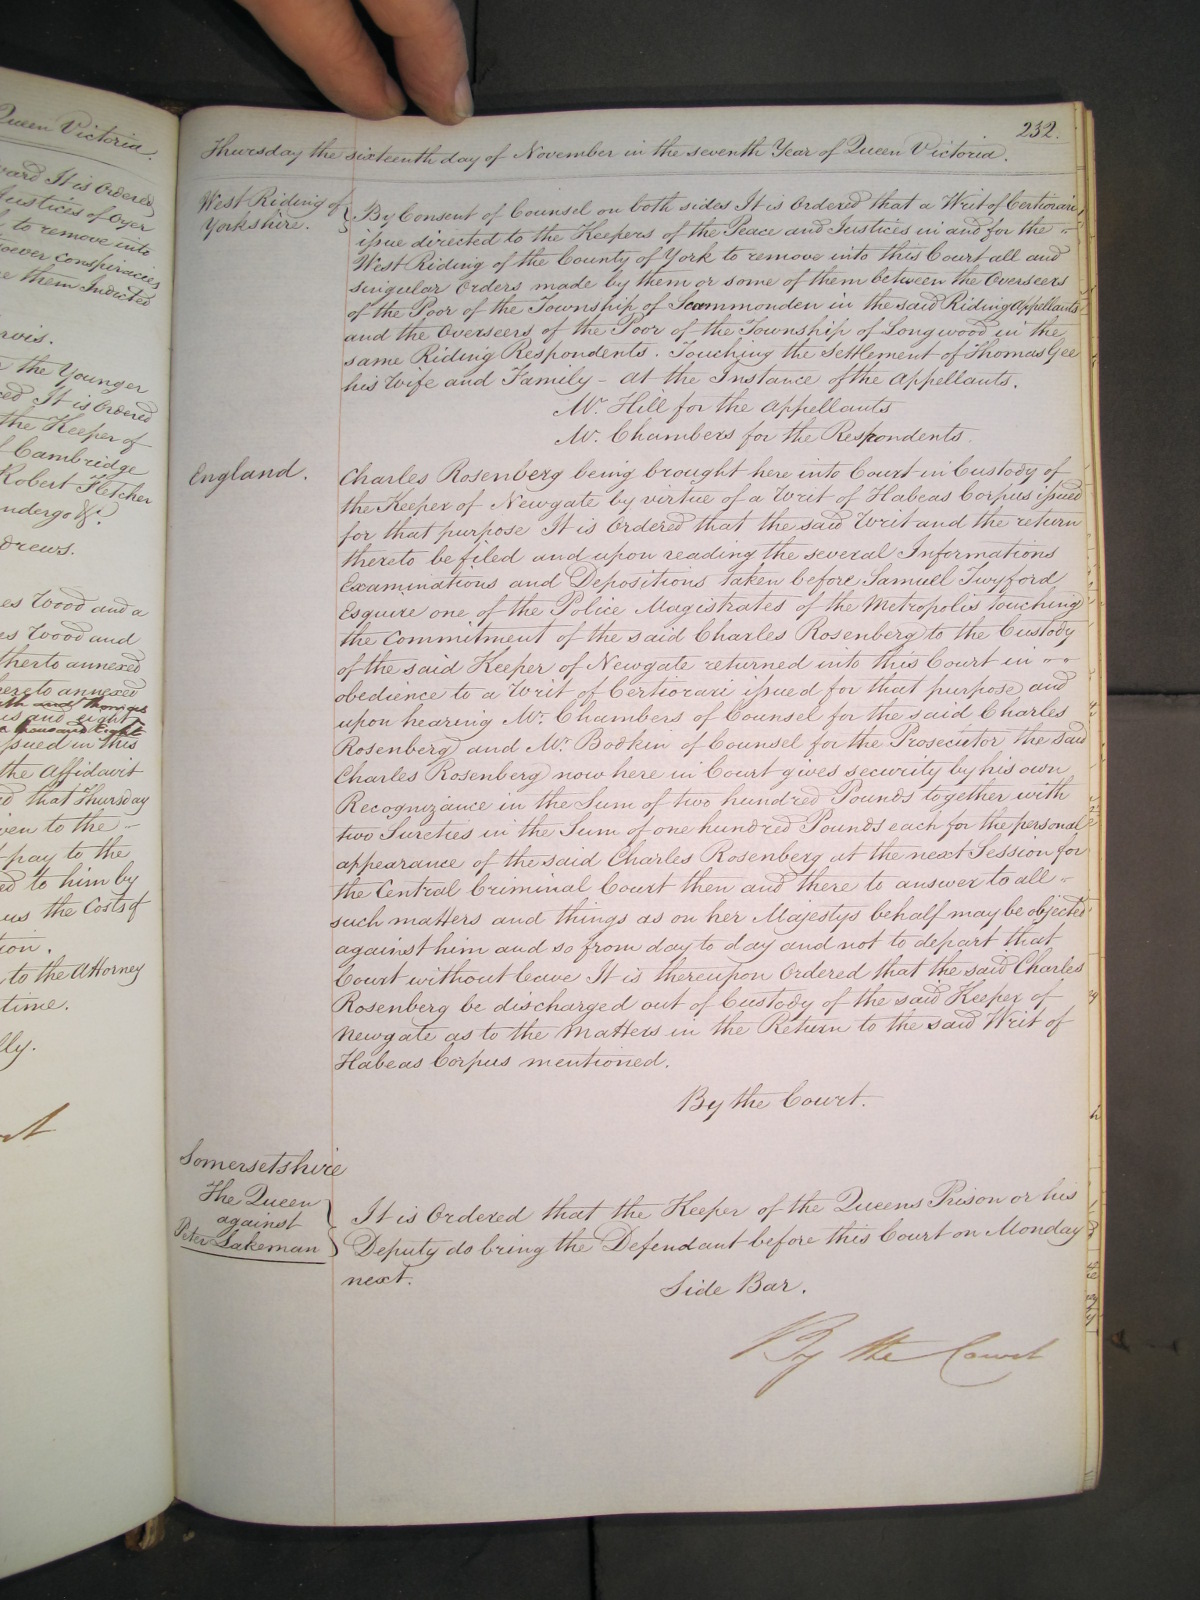 Queen Victoria.
ward It is Ordered
Justices of Oyer
to remove into
soever conspiracies
them Indicted
rvis.
the Younger
ced It is Ordered
the Keeper of
Cambridge
Robert Fletcher
ndergo &c.
drews.
es Wood and a
es Wood and
therto annexed
hereto annexed
us and eight
ssued in this
the Affidavit
ed that Thursday
ven to the
pay to the
ed to him by
us the Costs of
tion.
to the Attorney
time.
lly.
232.
Thursday the sixteenth day of November in the seventh Year of Queen Victoria.
West Riding of
Yorkshire.
By Consent of Counsel on both sides It is Ordered that a Writ of Certiorari
issue directed to the Keepers of the Peace and Justices in and for the
West Riding of the County of York to remove into this Court all and
singular Orders made by them or some of them between the Overseers
of the Poor of the Township of Scammonden in the said Riding Appellants
and the Overseers of the Poor of the Township of Longwood in the
same Riding Respondents. Touching the Settlement of Thomas Gee
his Wife and Family - at the Instance of the Appellants.
Mr. Hill for the Appellants
Mr. Chambers for the Respondents.
England.
Charles Rosenberg being brought here into Court in Custody of
the Keeper of Newgate by virtue of a Writ of Habeas Corpus issued
for that purpose It is Ordered that the said Writ and the return
thereto be filed and upon reading the several Informations
Examinations and Depositions taken before Samuel Twyford
Esquire one of the Police Magistrates of the Metropolis touching
the Commitment of the said Charles Rosenberg to the Custody
of the said Keeper of Newgate returned into this Court in
obedience to a Writ of Certiorari issued for that purpose and
upon hearing Mr. Chambers of Counsel for the said Charles
Rosenberg and Mr. Bodkin of Counsel for the Prosecutor the said
Charles Rosenberg now here in Court gives security by his own
Recognizance in the Sum of two hundred Pounds together with
two Sureties in the Sum of one hundred Pounds each for the personal
appearance of the said Charles Rosenberg at the next Session for
the Central Criminal Court then and there to answer to all
such matters and things as on her Majestys behalf may be objected
against him and so from day to day and not to depart that
Court without leave It is thereupon Ordered that the said Charles
Rosenberg be discharged out of Custody of the said Keeper of
Newgate as to the Matters in the Return to the said Writ of
Habeas Corpus mentioned.
By the Court.
Somersetshire
The Queen
against
Peter Lakeman
It is Ordered that the Keeper of the Queens Prison or his
Deputy do bring the Defendant before this Court on Monday
next.
Side Bar.
By the Court